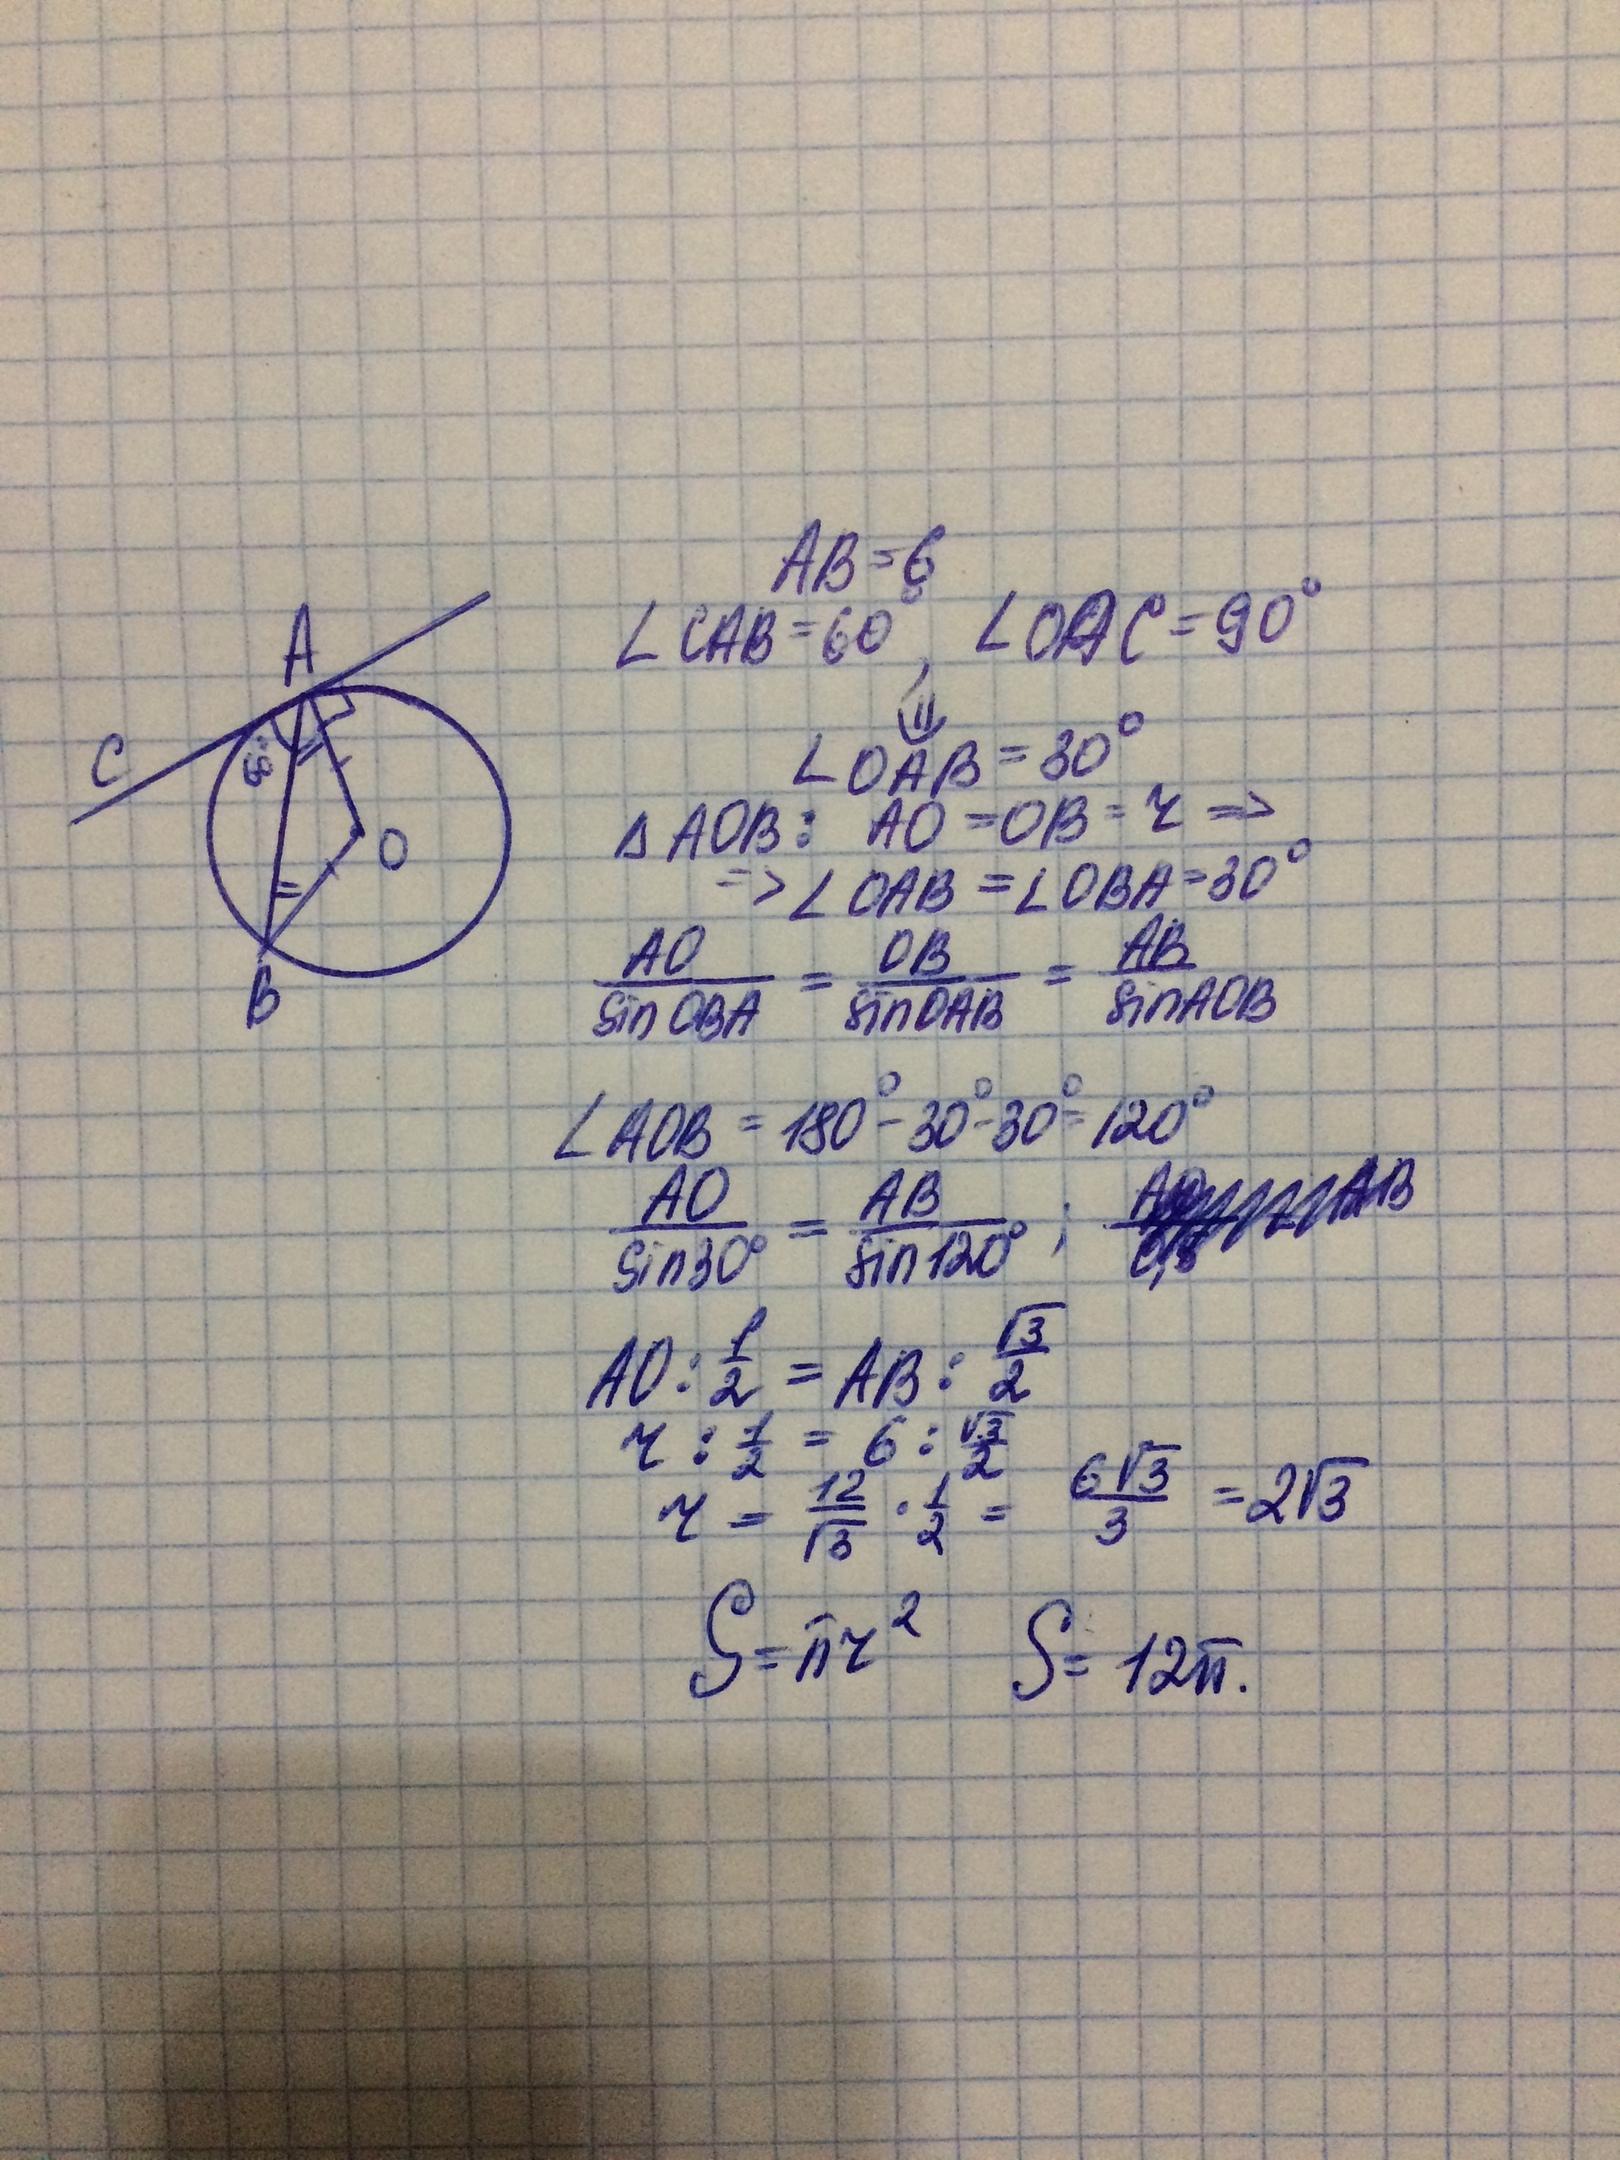 A
C
60°
O
B
AB=6
∠CAB=60°, ∠OAC=90°
⇓
∠OAB=30°
△AOB: AO=OB=r =>
=> ∠OAB=∠OBA=30°
AO/sinOBA = OB/sinOAB = AB/sinAOB
∠AOB=180°-30°-30°=120°
AO/sin30° = AB/sin120° ;
AO : 1/2 = AB : √3/2
r : 1/2 = 6 : √3/2
r = 12/√3 · 1/2 = 6√3/3 = 2√3
S=πr² S=12π.